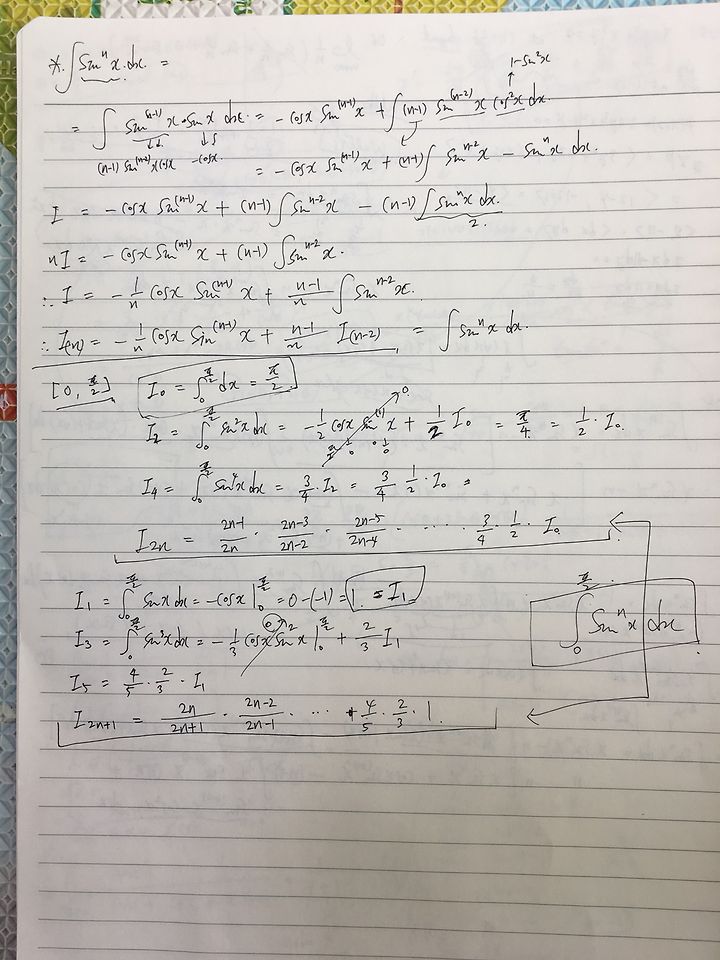 *. ∫ sinⁿ x · dx =
1-sin²x
= ∫ sin⁽ⁿ⁻¹⁾ x · sin x dx = -cosx sin⁽ⁿ⁻¹⁾ x + ∫ (n-1) sin⁽ⁿ⁻²⁾ x cos²x dx.
(n-1) sin⁽ⁿ⁻²⁾ x cosx -cosx. = -cosx sin⁽ⁿ⁻¹⁾ x + (n-1) ∫ sinⁿ⁻² x - sinⁿ x dx.
I = -cosx sin⁽ⁿ⁻¹⁾ x + (n-1) ∫ sinⁿ⁻² x - (n-1) ∫ sinⁿ x dx.
nI = -cosx sin⁽ⁿ⁻¹⁾ x + (n-1) ∫ sinⁿ⁻² x.
∴ I = -1/n cosx sin⁽ⁿ⁻¹⁾ x + (n-1)/n ∫ sinⁿ⁻² x.
∴ I(n) = -1/n cosx sin⁽ⁿ⁻¹⁾ x + (n-1)/n I(n-2) = ∫ sinⁿ x dx.
[0, π/2] I₀ = ∫₀^(π/2) dx = π/2
I₂ = ∫₀^(π/2) sin²x dx = -1/2 cosx sin⁽¹⁾ x + 1/2 I₀ = π/4 = 1/2 · I₀.
I₄ = ∫₀^(π/2) sin⁴x dx = 3/4 · I₂ = 3/4 · 1/2 · I₀ =
I₂ₙ = (2n-1)/2n · (2n-3)/(2n-2) · (2n-5)/(2n-4) · ····· 3/4 · 1/2 · I₀
I₁ = ∫₀^(π/2) sinx dx = -cosx |₀^(π/2) = 0-(-1) = 1. = I₁
∫₀^(π/2) sinⁿ x dx
I₃ = ∫₀^(π/2) sin³x dx = -1/3 cosx sin² x |₀^(π/2) + 2/3 I₁
I₅ = 4/5 · 2/3 · I₁
I₂ₙ₊₁ = 2n/(2n+1) · (2n-2)/(2n-1) · ··· · 4/5 · 2/3 · 1.